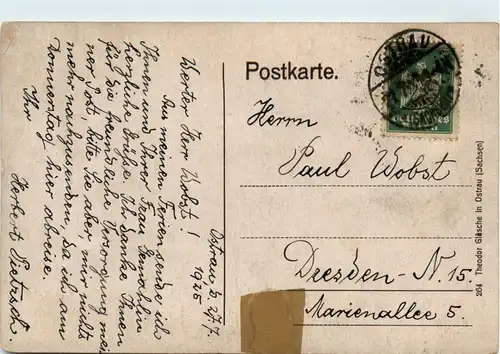 Ostrau, 27.7.
1925
Werter Herr Wobst!
Aus meinen Ferien sende ich
Ihnen und Ihrer Frau Gemahlin
herzliche Grüße. Ich danke Ihnen
für die freundliche Versorgung mei
ner Post, bitte Sie aber, mir nichts
mehr nachzusenden, da ich am
Donnerstag hier abreise.
Ihr
Herbert
Postkarte.
OSTRAU
Herrn
Paul Wobst
Dresden-N. 15.
Marienallee 5.
264 Theodor Gläsche in Ostrau (Sachsen)